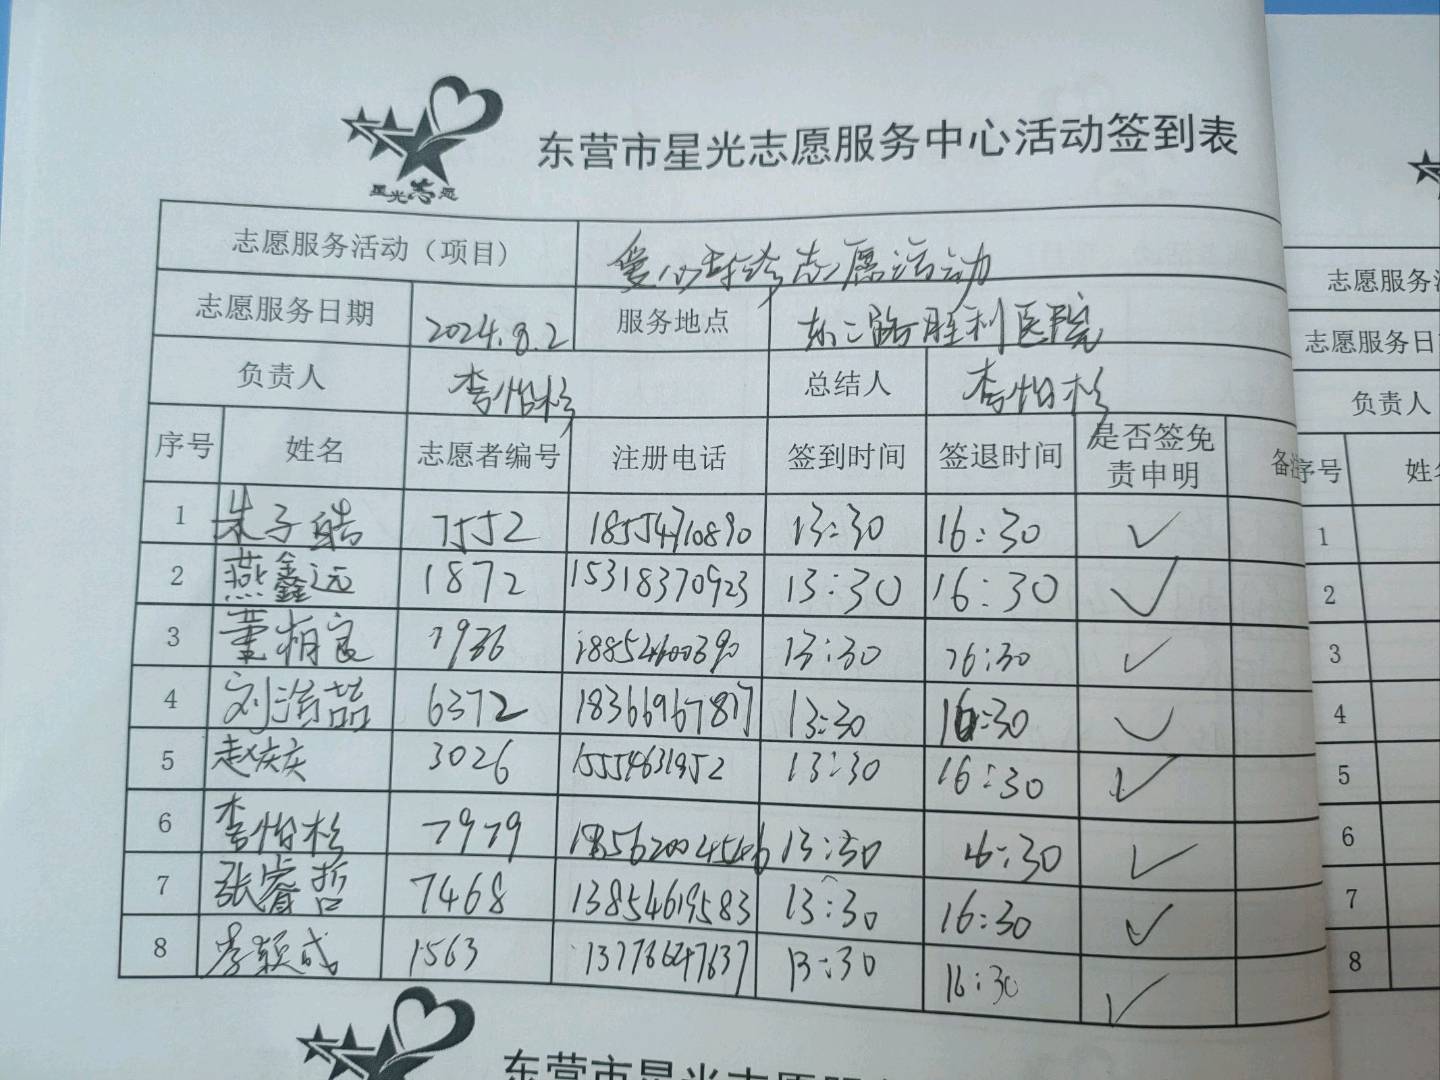 星光志愿
东营市星光志愿服务中心活动签到表
志愿服务活动（项目） 爱心陪诊志愿活动
志愿服务日期 2024.8.2 服务地点 东二路胜利医院
负责人 李怡杉 总结人 李怡杉
序号 姓名 志愿者编号 注册电话 签到时间 签退时间 是否签免责申明 备
1 朱子皓 7552 18554710890 13:30 16:30 ✓
2 燕鑫远 1872 15318370923 13:30 16:30 ✓
3 董栯良 7936 18852600390 13:30 16:30 ✓
4 刘洁喆 6372 18366967817 13:30 16:30 ✓
5 赵庆庆 3026 15554631952 13:30 16:30 ✓
6 李怡杉 7979 13:30 16:30 ✓
7 张睿哲 7468 13854619583 13:30 16:30 ✓
8 李颖成 1563 13776647637 13:30 16:30 ✓
志愿服务活
志愿服务日
负责人
序号 姓名
1
2
3
4
5
6
7
8
东营市星光志愿服